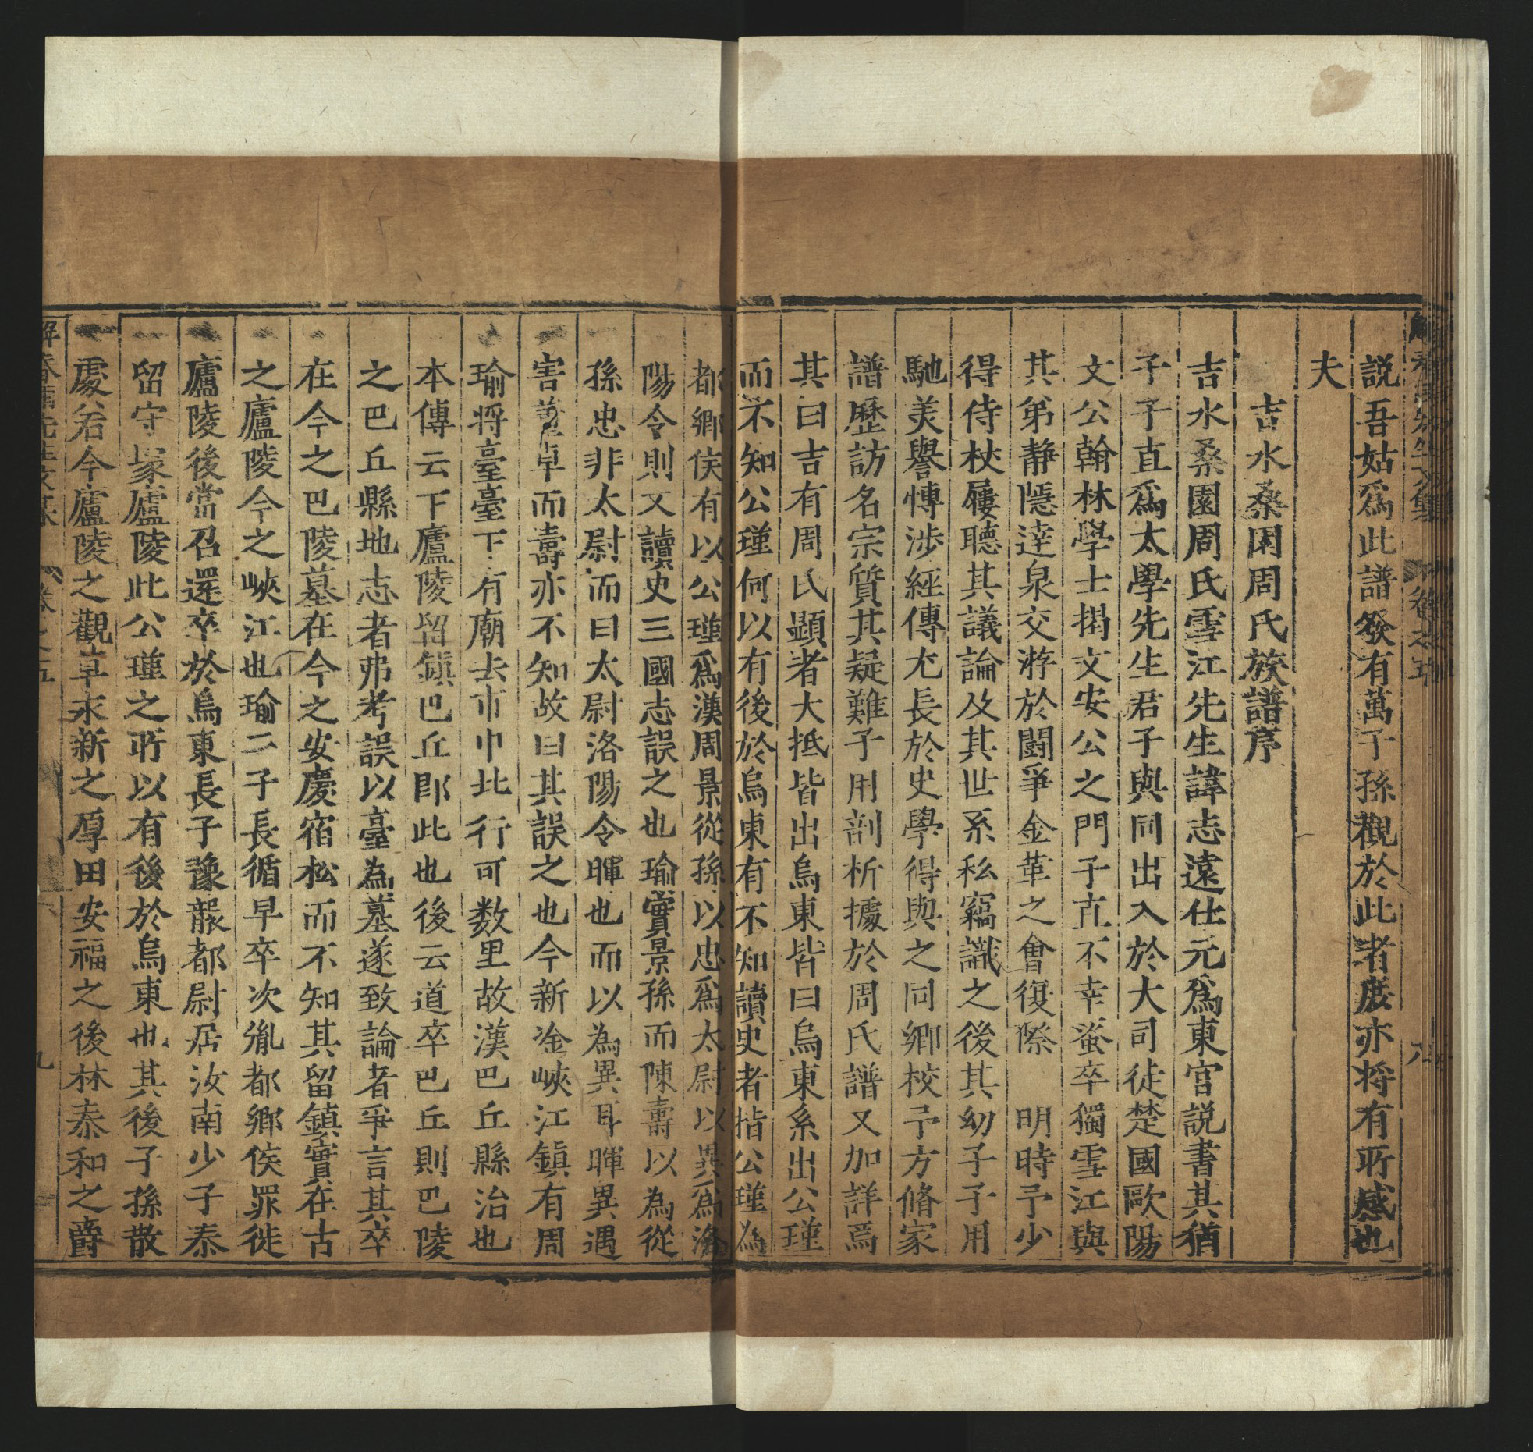 說吾姑爲此譜發有萬子孫觀於此者庶亦將有所感也
夫
吉水桑園周氏族譜序
吉水桑園周氏雪江先生諱志遠仕元爲東宮説書其猶
子子直爲太學先生君子與同出入於大司徒楚國歐陽
文公翰林學士揭文安公之門子直不幸蚤卒獨雪江與
其弟靜隱逹泉交游於闘爭金革之會復際 明時予少
得侍杖屨聽其議論及其世系私竊識之後其幼子子用
馳美譽愽涉經傳尤長於史學得與之同鄉校予方脩家
譜歷訪名宗質其疑難子用剖析據於周氏譜又加詳焉
其曰吉有周氏顯者大抵皆出烏東皆曰烏東系出公瑾
而不知公瑾何以有後於烏東有不知讀史者指公瑾為
都鄉侯有以公瑾爲漢周景從孫以忠爲太尉以異爲洛
陽令則又讀史三國志誤之也瑜實景孫而陳壽以為從
孫忠非太尉而曰太尉洛陽令暉也而以為異耳暉異遇
害董卓而壽亦不知故曰其誤之也今新淦峽江鎮有周
瑜將臺臺下有廟去市巾北行可数里故漢巴丘縣治也
本傳云下廬陵留鎮巴丘即此也後云道卒巴丘則巴陵
之巴丘縣地志者弗考誤以臺為墓遂致論者爭言其卒
在今之巴陵墓在今之安慶宿松而不知其留鎮實在古
之廬陵今之峽江也瑜二子長循早卒次胤都鄉侯罪徙
廬陵後當召還卒於烏東長子豫龍都尉居汝南少子泰
留守塚廬陵此公瑾之所以有後於烏東也其後子孫散
處若今廬陵之觀草永新之厚田安福之後林泰和之爵